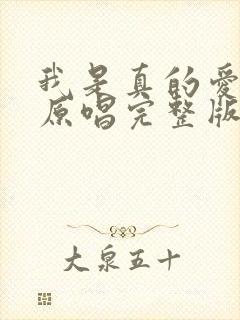 我是真的爱
原唱完整版
大泉五十